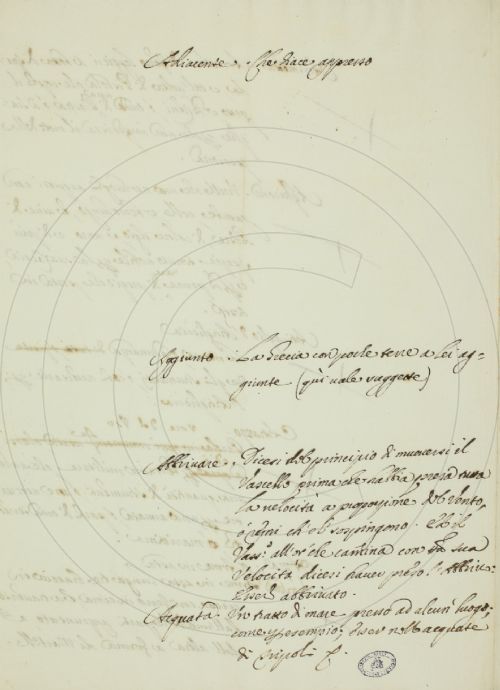 Adiacente . Che giace appresso
Aggiunto . La Grecia con poche terre a lei ag-
giunte (qui vale suggette)
Abbrivare . Dicesi del principio di muoversi il
Vascello prima che habbia presa tutta
la velocità a proporzione del Vento,
o remi che lo sospingono. Ed il
Vass.º all'or che camina con la sua
velocità dicesi haver preso l'Abbrivo.
Esser abbrivato.
Acquata . Un tratto di mare presso ad alcun luogo,
come per esempio; Esser nelle acquate
di Tripoli